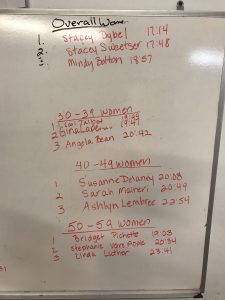 Overall Women
1. Stacey Dybel 17:14
2. Stacey Sweetser 17:48
3. Mindy Bolton 18:57
30-39 women
1 Talbot
2 Gina 19:47
3 Angela Bean 20:42
40-49 women
1 Susanne Delaney 20:08
2 Sarah Maineri 20:49
3 Ashlyn Lembree 22:54
50-59 women
1 Bridget Pichette 19:03
2 Stephanie Poole 20:54
3 Linda Luther 23:41